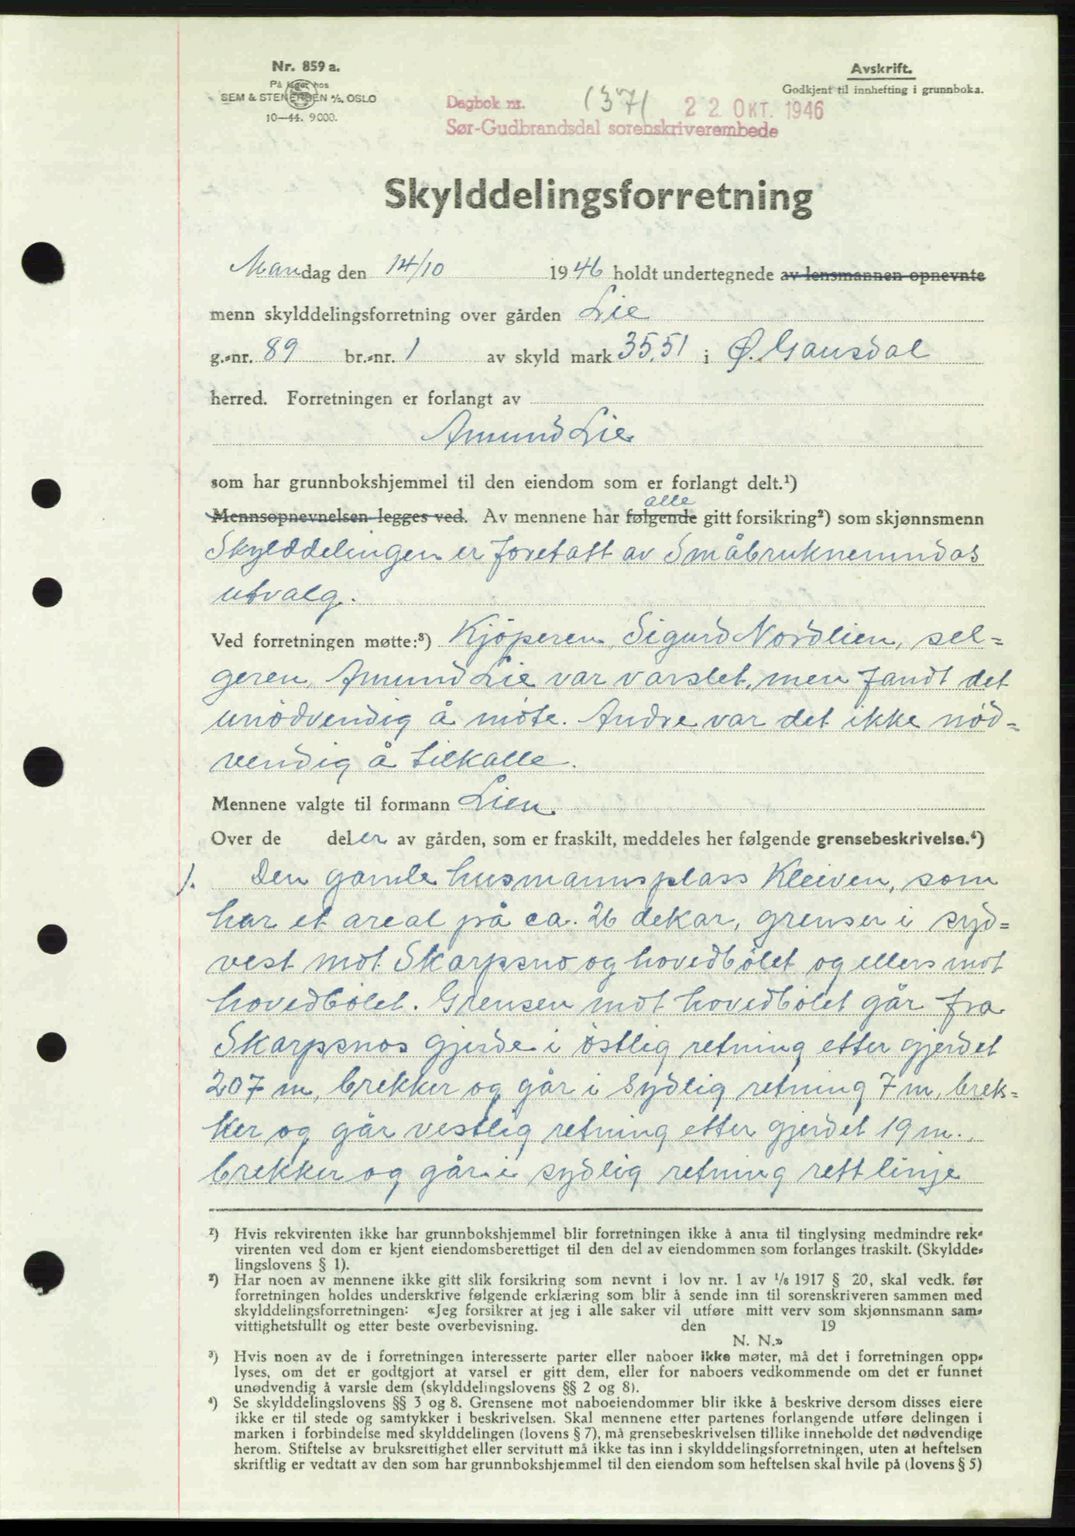 Nr. 859 a.
På lager hos
SEM & STENERSEN A/S, OSLO
10-44. 9000.
Avskrift.
Godkjent til innhefting i grunnboka.
Dagbok nr. 1371 22 OKT. 1946
Sør-Gudbrandsdal sorenskriverembede
Skylddelingsforretning
Mandag den 14/10 1946 holdt undertegnede av lensmannen opnevnte
menn skylddelingsforretning over gården Lie
g.-nr. 89 br.-nr. 1 av skyld mark 35,51 i Ø. Gausdal
herred. Forretningen er forlangt av
Amund Lie
som har grunnbokshjemmel til den eiendom som er forlangt delt.¹)
alle
Mennsopnevnelsen legges ved. Av mennene har følgende gitt forsikring²) som skjønnsmenn
Skylddelingen er foretatt av Småbruknemndas
utvalg.
Ved forretningen møtte:³) Kjöperen, Sigurd Nordlien, sel-
geren, Amund Lie var varslet, men fandt det
unödvendig å möte. Andre var det ikke nöd-
vendig å tilkalle.
Mennene valgte til formann Lien
Over de deler av gården, som er fraskilt, meddeles her følgende grensebeskrivelse.⁴)
1. Den gamle husmannsplass Kleiven, som
har et areal på ca. 26 dekar, grenser i syd-
vest mot Skarpsno og hovedbölet og ellers mot
hovedbölet. Grensen mot hovedbölet går fra
Skarpsnos gjerde i östlig retning etter gjerdet
207 m, brekker og går i sydlig retning 7 m, brek-
ker og går vestlig retning etter gjerdet 19 m.,
brekker og går i sydlig retning rett linje
¹) Hvis rekvirenten ikke har grunnbokshjemmel blir forretningen ikke å anta til tinglysing medmindre rek-
virenten ved dom er kjent eiendomsberettiget til den del av eiendommen som forlanges fraskilt. (Skyldde-
lingslovens § 1).
²) Har noen av mennene ikke gitt slik forsikring som nevnt i lov nr. 1 av 1/8 1917 § 20, skal vedk. før
forretningen holdes underskrive følgende erklæring som blir å sende inn til sorenskriveren sammen med
skylddelingsforretningen: «Jeg forsikrer at jeg i alle saker vil utføre mitt verv som skjønnsmann sam-
vittighetsfullt og etter beste overbevisning. den 19
N. N.»
³) Hvis noen av de i forretningen interesserte parter eller naboer ikke møter, må det i forretningen opp-
lyses, om det er godtgjort at varsel er gitt dem, eller for naboers vedkommende om det er funnet
unødvendig å varsle dem (skylddelingslovens §§ 2 og 8).
⁴) Se skylddelingslovens §§ 3 og 8. Grensene mot naboeiendommer blir ikke å beskrive dersom disses eiere
ikke er til stede og samtykker i beskrivelsen. Skal mennene etter partenes forlangende utføre delingen i
marken i forbindelse med skylddelingen (lovens § 7), må grensebeskrivelsen tillike inneholde det nødvendige
herom. Stiftelse av bruksrettighet eller servitutt må ikke tas inn i skylddelingsforretningen, uten at heftelsen
skriftlig er vedtatt av den som har grunnbokshjemmel til den eiendom som heftelsen skal hvile på (lovens § 5)